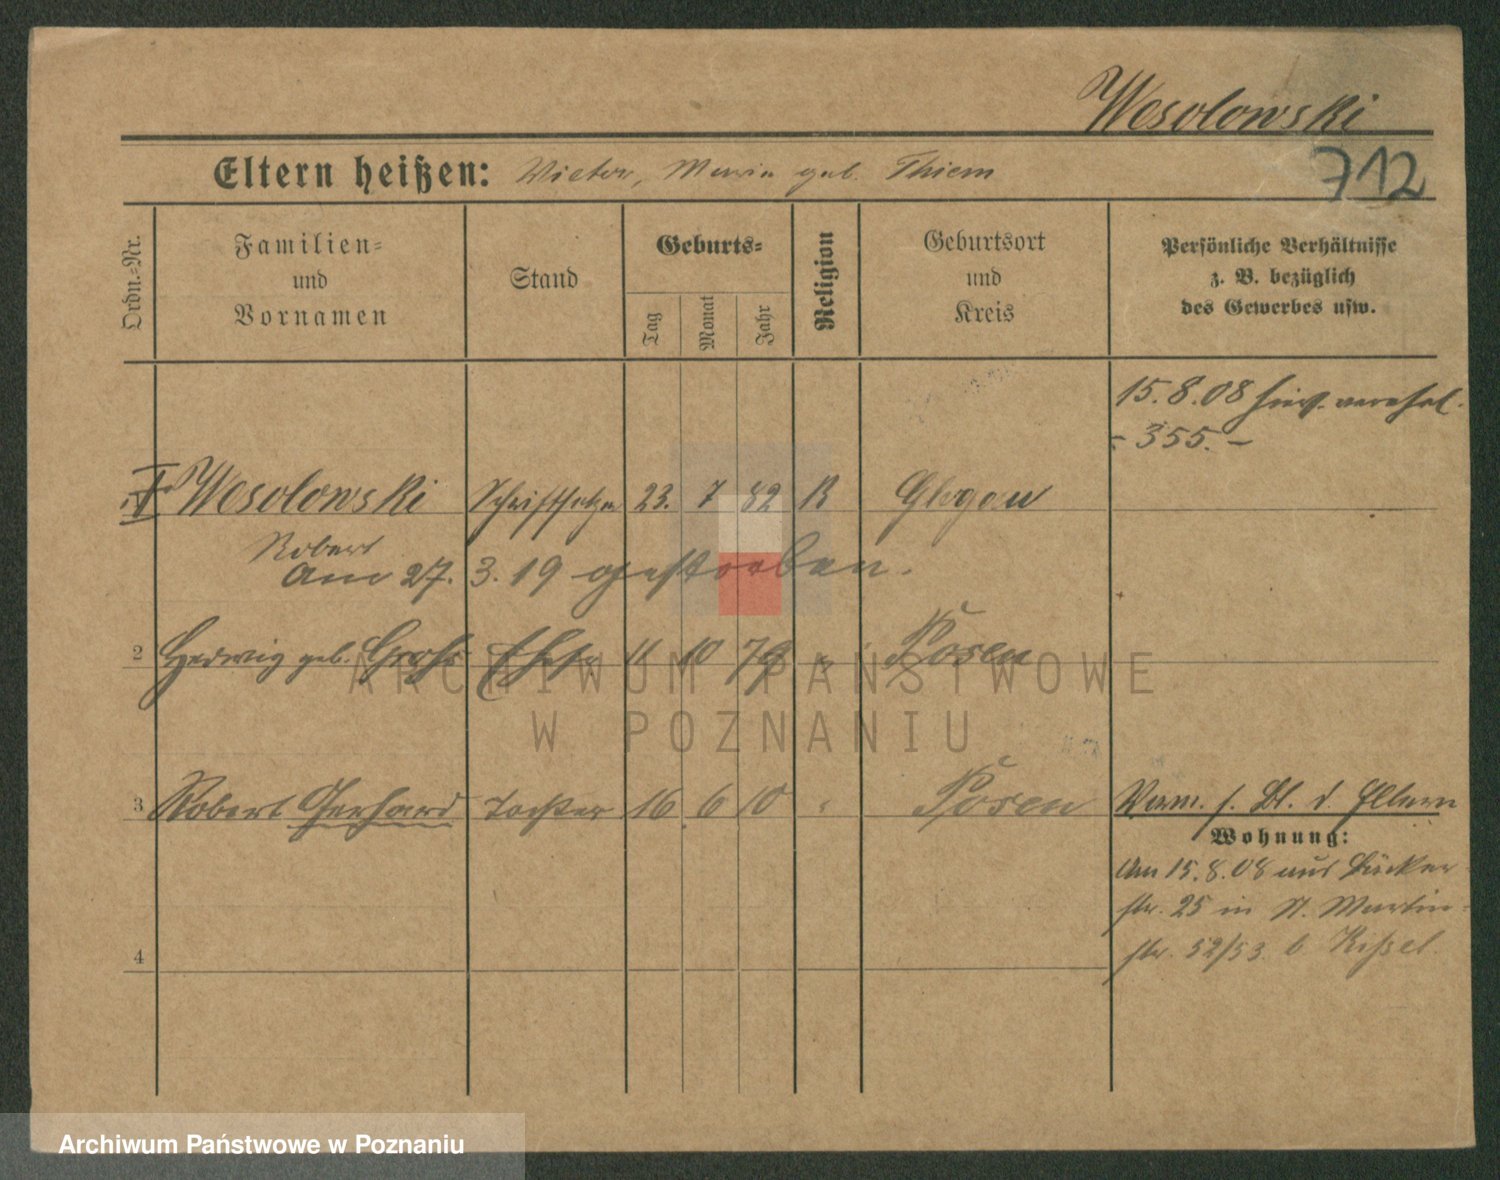 Wesolowski
712
Eltern heißen: Victor, Maria geb. Thiem
Ordn.=Nr.
Familien=
und
Vornamen
Stand
Geburts=
Tag
Monat
Jahr
Religion
Geburtsort
und
Kreis
Persönliche Verhältnisse
z. B. bezüglich
des Gewerbes usw.
15.8.08
- 355. -
Wesolowski Schriftsetzer 23. 7 82 R Glogau
Robert
Am 27. 3. 19 gestorben.
2 Hedwig geb. Ehefr 11 10 79 " Posen
3 Robert Gerhard Tochter 16 6 10 " Posen
d. Eltern
Wohnung:
Am 15.8.08 aus Bäcker
str. 25 in St. Martin-
str. 52/53 b Kißel.
4
ARCHIWUM PAŃSTWOWE
W POZNANIU
Archiwum Państwowe w Poznaniu